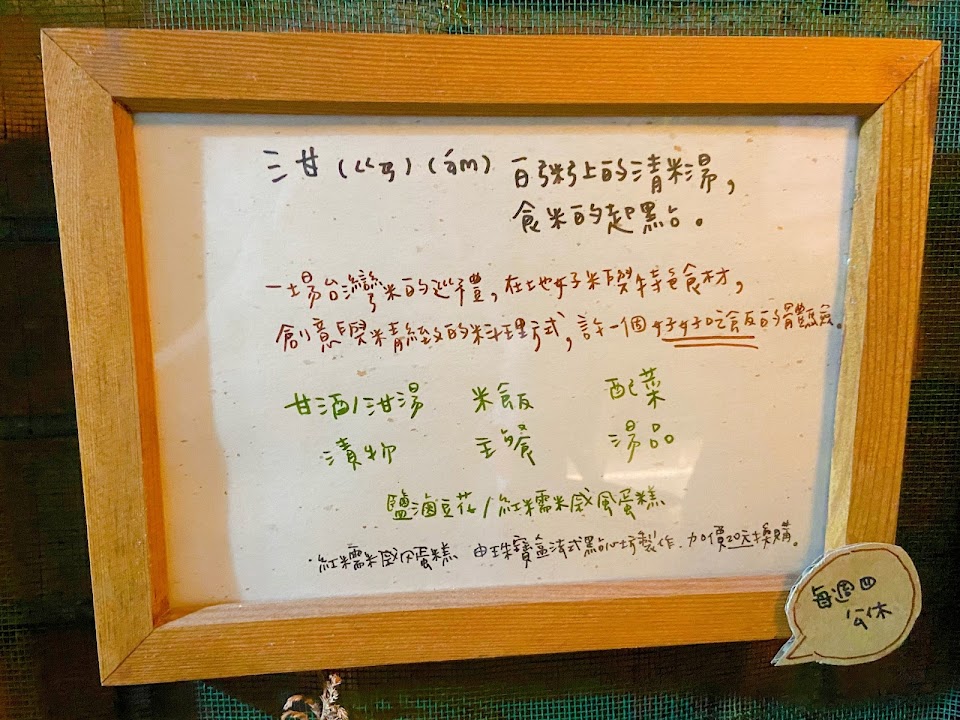 泔(ㄍㄢ)(ám) 白粥上的清米湯,
食米的起點。
一場台灣米的巡禮,在地好米與特色食材,
創意與精緻的料理形式,許一個好好吃飯的體驗。
甘酒/泔湯 米飯 配菜
漬物 主餐 湯品
鹽滷豆花/紅糯米戚風蛋糕
·紅糯米戚风蛋糕 由珠寶盒法式點心坊製作.加價20元換購。
每週四
公休